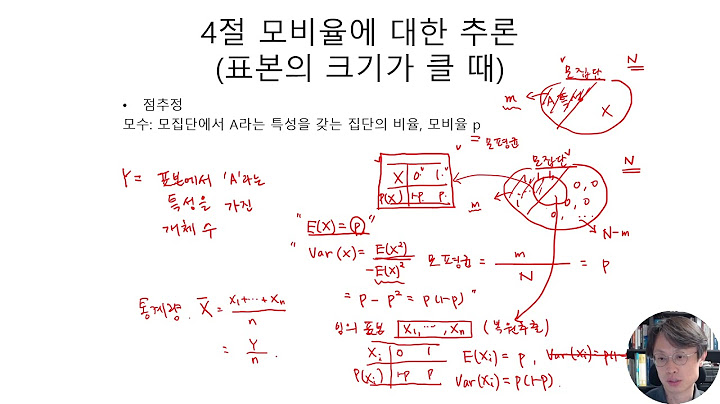 4절 모비율에 대한 추론
(표본의 크기가 클 때)
• 점추정
모수: 모집단에서 A라는 특성을 갖는 집단의 비율, 모비율 p
모집단 N
m A특성 X
= 모평균
X 0 1
P(X) 1-p p
모집단 N
m
0, 0
0, 0
0, ...
N-m
Y = 표본에서 'A'라는
특성을 가진
개체 수
" E(X) = p "
" Var(X) = E(X²)
-E(X)²
= p - p² = p(1-p) "
모평균 = m / N = p
통계량. X̄ = X₁+...+Xₙ / n
= Y / n .
임의 표본 X₁, ..., Xₙ (복원추출)
Xᵢ 0 1
P(Xᵢ) 1-p p
E(Xᵢ) = p , Var(Xᵢ) = p(1-
Var(Xᵢ) = p(1-p).